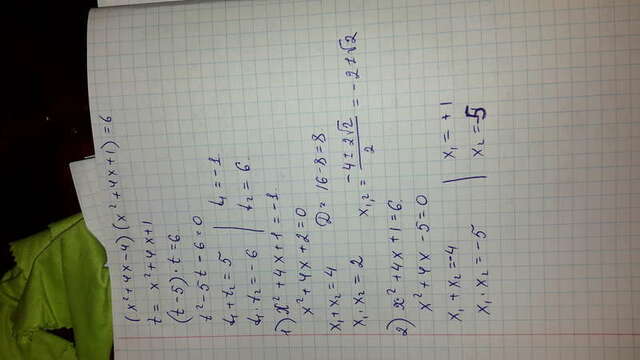 (x²+4x-4)(x²+4x+1)=6
t = x²+4x+1
(t-5)·t=6
t²-5t-6=0
t₁+t₂=5 | t₁=-1
t₁·t₂=-6 | t₂=6
1) x²+4x+1=-1
x²+4x+2=0
x₁+x₂=4 D=16-8=8
x₁·x₂=2 x₁,₂=(-4±2√2)/2=-2±√2
2) x²+4x+1=6
x²+4x-5=0
x₁+x₂=-4 | x₁=+1
x₁·x₂=-5 | x₂=-5